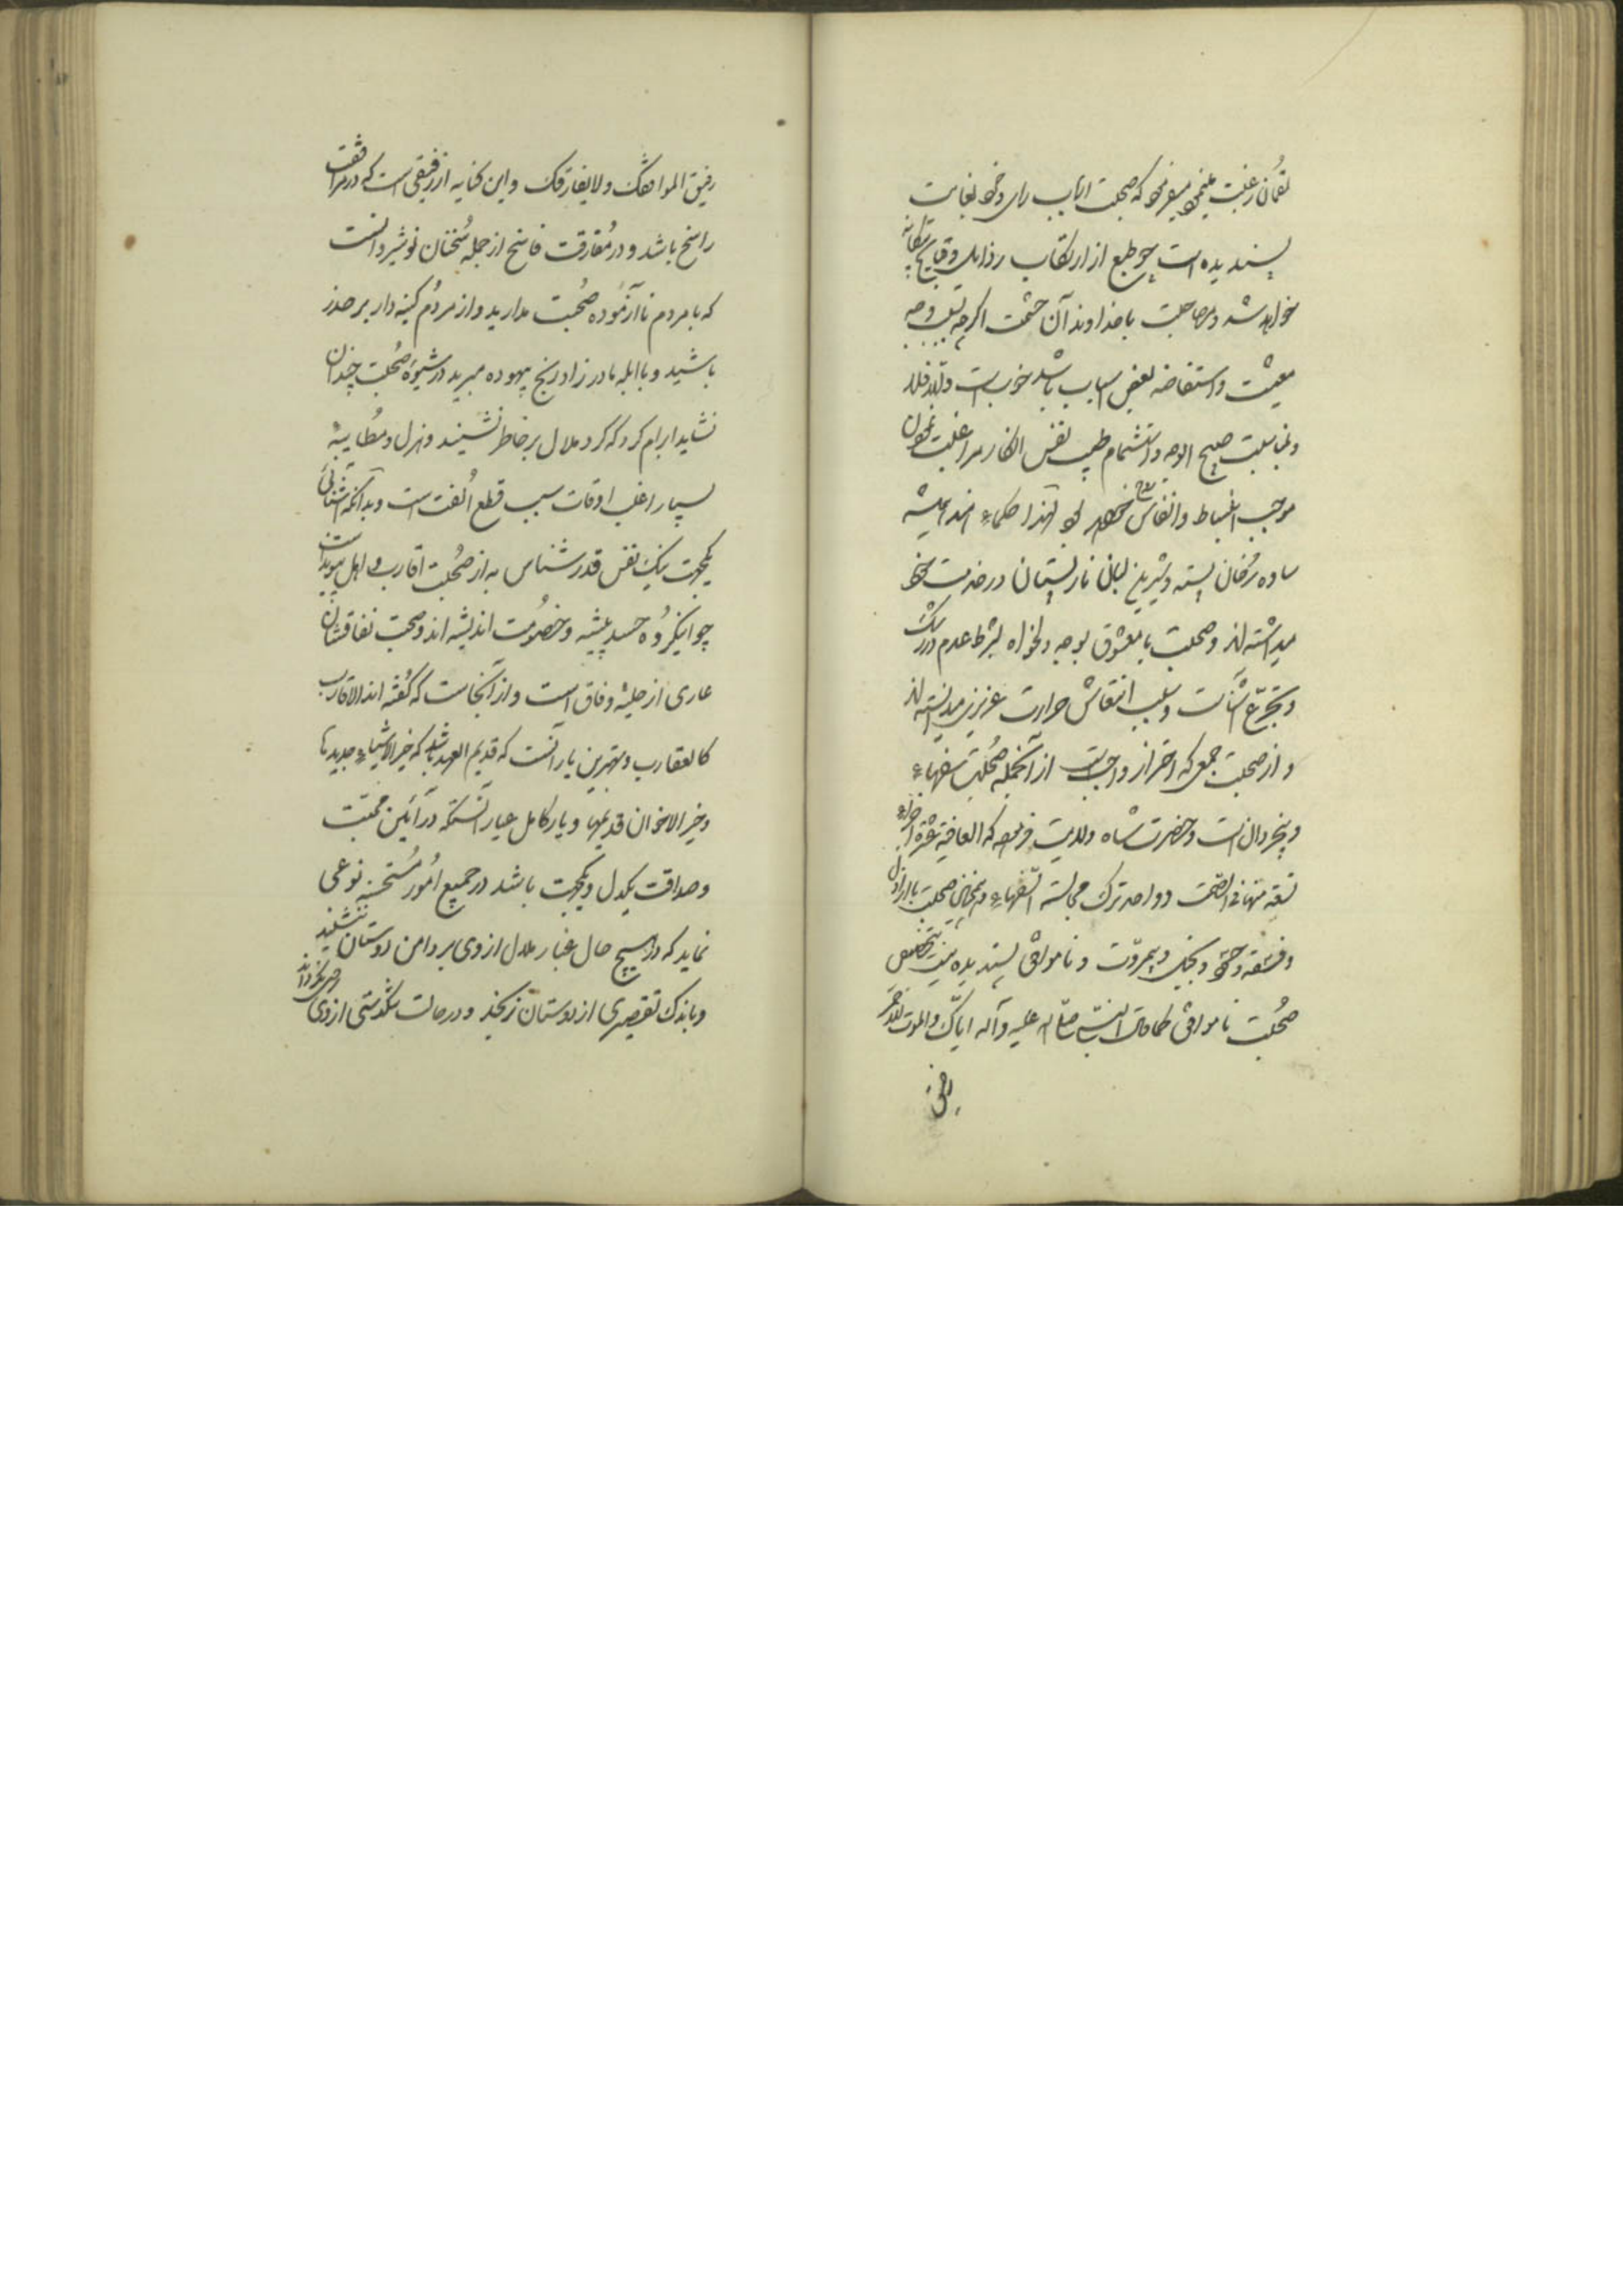 لقمان رغبت مینمود میفرمود که صحبت ارباب رای و خرد بغایت
پسندیده است چو طبع از ارتکاب رذایل و قبایح
خواهد شد و مصاحبت با خداوند آن حشمت اگرچه بسبب وجه
معیشت و استفاضه بعض اسباب باشد خوبست
و مناسبت صبیح الوجه و استشمام طیب نفس
موجب انبساط و انتعاش خواهد بود لهذا حکماء هند همیشه
ساده رخان پسته و شیرین لبان نارپستان در خدمت خود
میداشته‌اند و صحبت با معشوق بوجه دلخواه بشرط عدم
و تجرع است و سبب انتعاش حرارت غریزی میدانسته‌اند
و از صحبت جمعی که احتراز واجبست از آنجمله صُحبت سفهاء
و بیخردان است و حضرت شاه ولایت فرموده که العافیة عشرة اجزاء
تسعة منها فی الصمت و واحد ترک مجالسة السفهاء و همچنین صحبت با اراذل
و فسقه و و بیمروت و ناموافق پسندیده نیست بتخصیص
صُحبت ناموافق کما قال النبی صلی الله علیه وآله ایاک
رفیق
رفیق الموافقک ولا یفارقک و این کنایه از رفیقی است که در مرافقت
راسخ باشد و در مُفارقت فاسخ از جمله سُخنان نوشیروانست
که با مردم ناآزموده صُحبت مدارید و از مردُم کینه‌دار بر حذر
باشید و با ابله مادرزاد رنج بیهوده مبرید در شیوهٔ صُحبت چندان
نشاید ابرام کرد که گرد ملال بر خاطر نشیند و هزل و مُطایبه
بسیار اغلب اوقات سبب قطع اُلفت است و بدانکه آشنائی
یکجهت نیک نفس قدرشناس به از صُحبت اقارب و اهل پیوند است
چو اینگروُه حسد پیشه و خصُومت اندیشه‌اند و صحبت نفاقشان
عاری از حلیهٔ وفاق است و از آنجاست که گفته‌اند الاقارب
کالعقارب و بهترین یار آنست که قدیم العهد باشد که خیر الاشیاء جدیدها
و خیر الاخوان قدیمها و یار کامل عیار آنستکه در آئین محبت
و صداقت یکدل و یکجهت باشد در جمیع اُمور مُستحسنه نوعی
نماید که در هیچ حال غبار ملال از وی بر دامن دوستان ننشیند
و باندک تقصیری از دوستان نرنجد و در حالت تنگدستی از وی